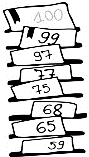 100
99
97
77
75
68
65
59